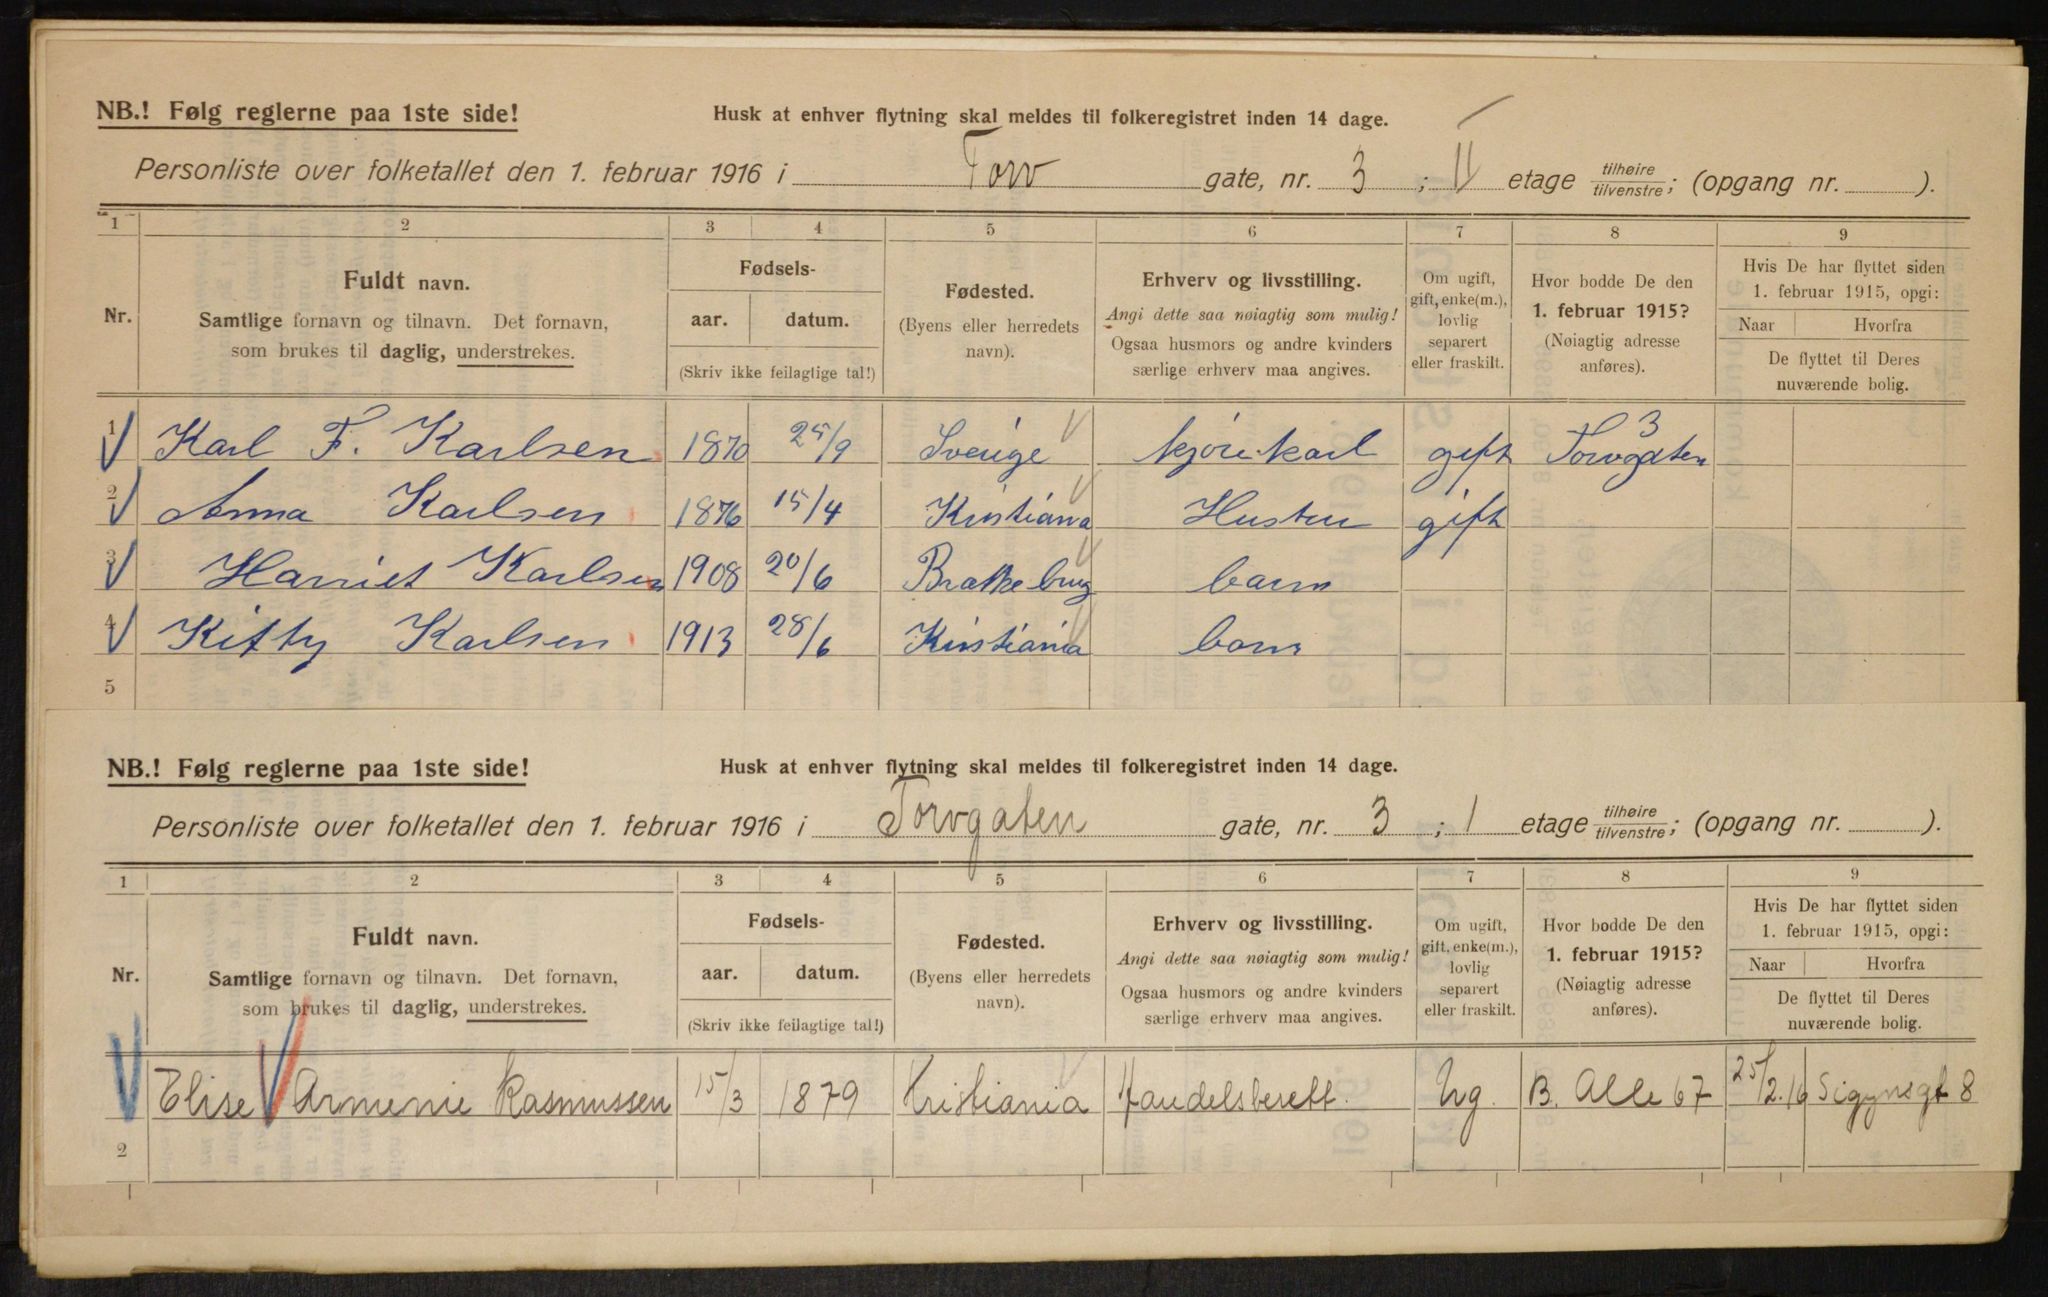 NB.! Følg reglerne paa 1ste side! Husk at enhver flytning skal meldes til folkeregistret inden 14 dage.
Personliste over folketallet den 1. februar 1916 i Torv gate, nr. 3 ; II etage tilhøire/tilvenstre; (opgang nr. ).
1 2 3 4 5 6 7 8 9
Nr.
Fuldt navn.
Samtlige fornavn og tilnavn. Det fornavn,
som brukes til daglig, understrekes.
Fødsels-
aar. datum.
(Skriv ikke feilagtige tal!)
Fødested.
(Byens eller herredets
navn).
Erhverv og livsstilling.
Angi dette saa nøiagtig som mulig!
Ogsaa husmors og andre kvinders
særlige erhverv maa angives.
Om ugift,
gift, enke(m.),
lovlig
separert
eller fraskilt.
Hvor bodde De den
1. februar 1915?
(Nøiagtig adresse
anføres).
Hvis De har flyttet siden
1. februar 1915, opgi:
Naar Hvorfra
De flyttet til Deres
nuværende bolig.
1 Karl F. Karlsen 1870 25/9 Sverige kjørekarl gift Torvgaten 3
2 Anna Karlsen 1876 15/4 Kristiania Hustru gift
3 Harriet Karlsen 1908 20/6 barn
4 Kitty Karlsen 1913 28/6 Kristiania barn
5
NB.! Følg reglerne paa 1ste side! Husk at enhver flytning skal meldes til folkeregistret inden 14 dage.
Personliste over folketallet den 1. februar 1916 i Torvgaten gate, nr. 3 ; 1 etage tilhøire/tilvenstre; (opgang nr. ).
1 2 3 4 5 6 7 8 9
Nr.
Fuldt navn.
Samtlige fornavn og tilnavn. Det fornavn,
som brukes til daglig, understrekes.
Fødsels-
aar. datum.
(Skriv ikke feilagtige tal!)
Fødested.
(Byens eller herredets
navn).
Erhverv og livsstilling.
Angi dette saa nøiagtig som mulig!
Ogsaa husmors og andre kvinders
særlige erhverv maa angives.
Om ugift,
gift, enke(m.),
lovlig
separert
eller fraskilt.
Hvor bodde De den
1. februar 1915?
(Nøiagtig adresse
anføres).
Hvis De har flyttet siden
1. februar 1915, opgi:
Naar Hvorfra
De flyttet til Deres
nuværende bolig.
Elise Armenie Rasmussen 15/3 1879 Kristiania Handelsberett. Ug. B. Alle 67 25/2.16 Sigynsgt 8
2